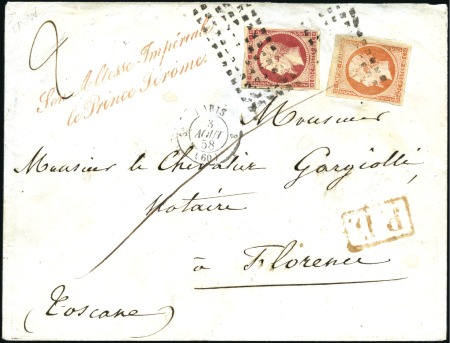 2
Son Altesse Impériale
le Prince Jérôme.
PARIS
3
AOUT
58
(60)
Monsieur
Monsieur le Chevalier Gargiolli
Notaire
P.D.
à Florence
(Toscane)